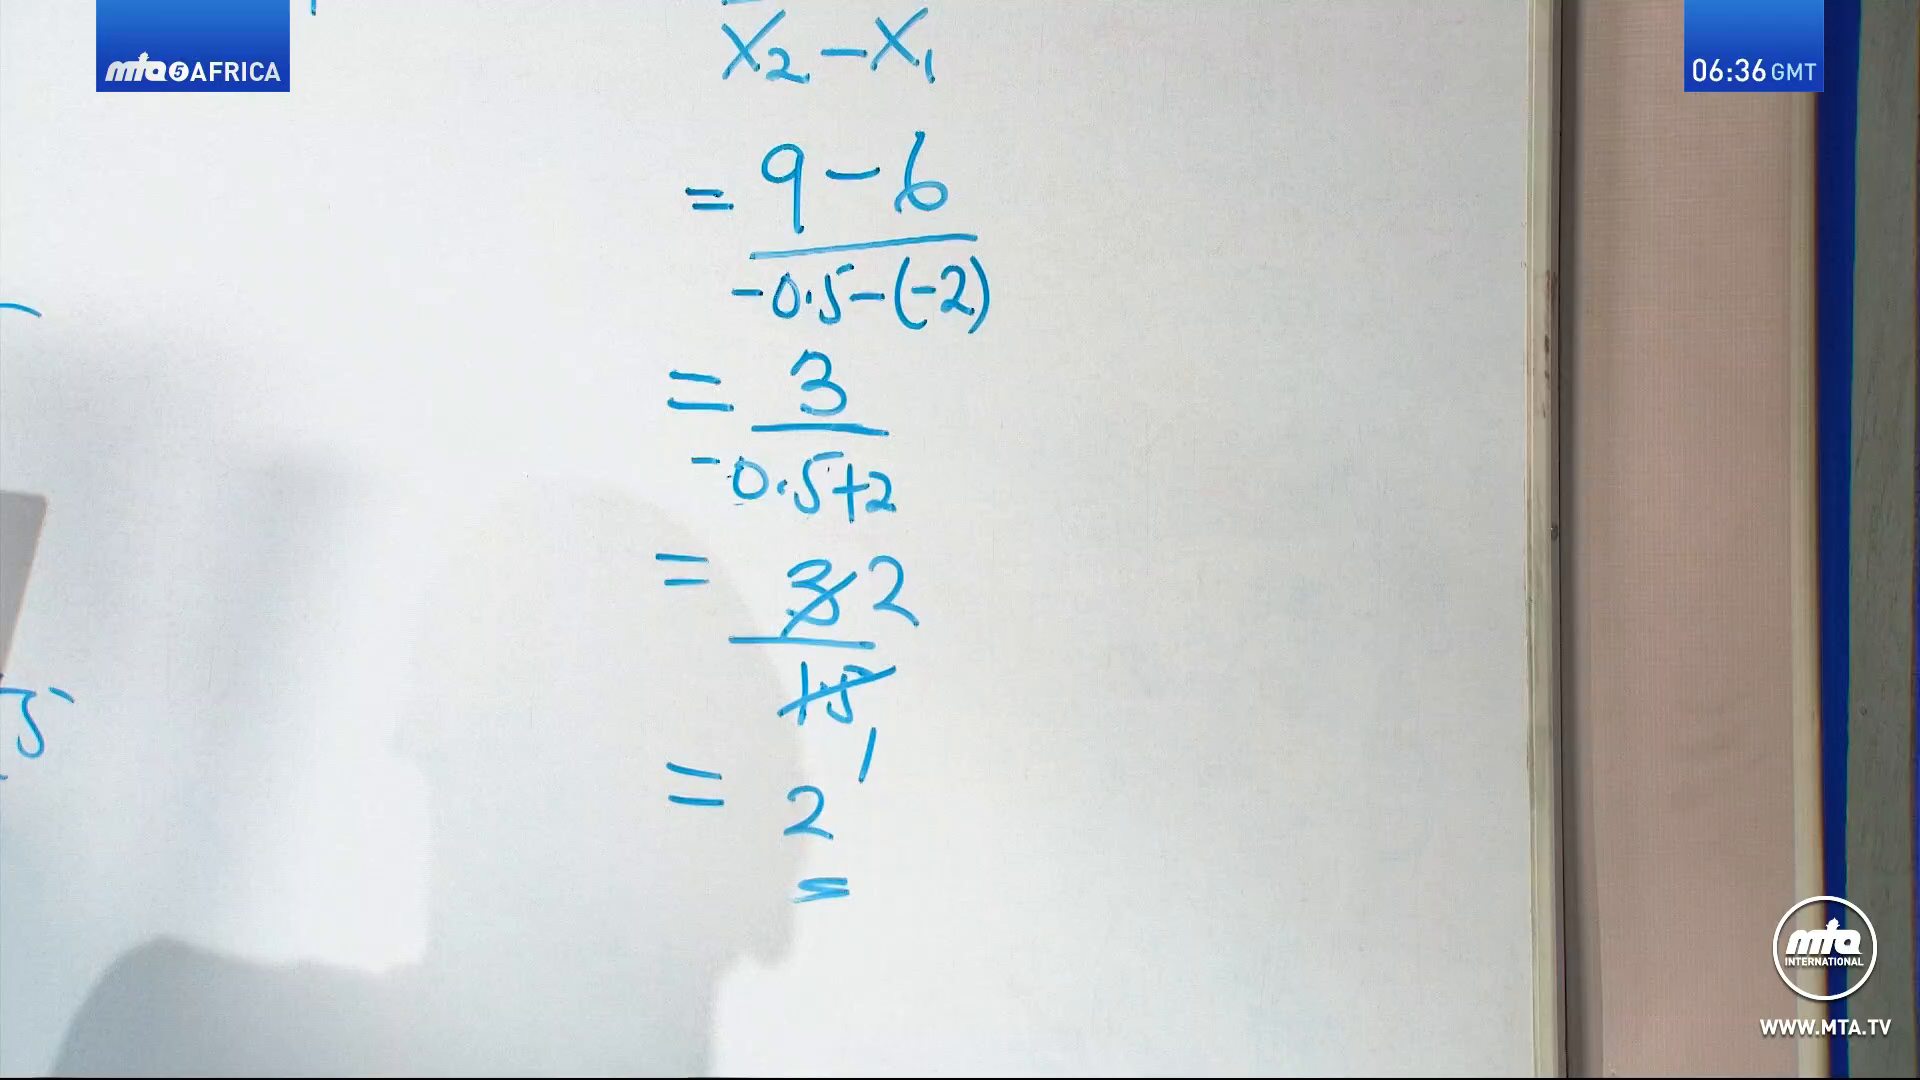 mta5AFRICA
06:36 GMT
X₂ - X₁
= 9 - 6
-0.5 - (-2)
= 3
-0.5 + 2
= 3 2
1.5
1
= 2
5
mta
INTERNATIONAL
WWW.MTA.TV